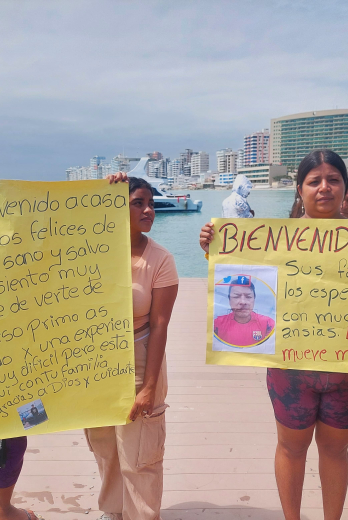 venido a casa
os felices de
sano y salvo
siento muy
e de verte de
so Primo as
o x una experien
uy dificil pero esta
ui con tu familia
gracias a Dios x cuidarte
BIENVENID
Sus fa
los espe
con muc
ansias.
mueve m